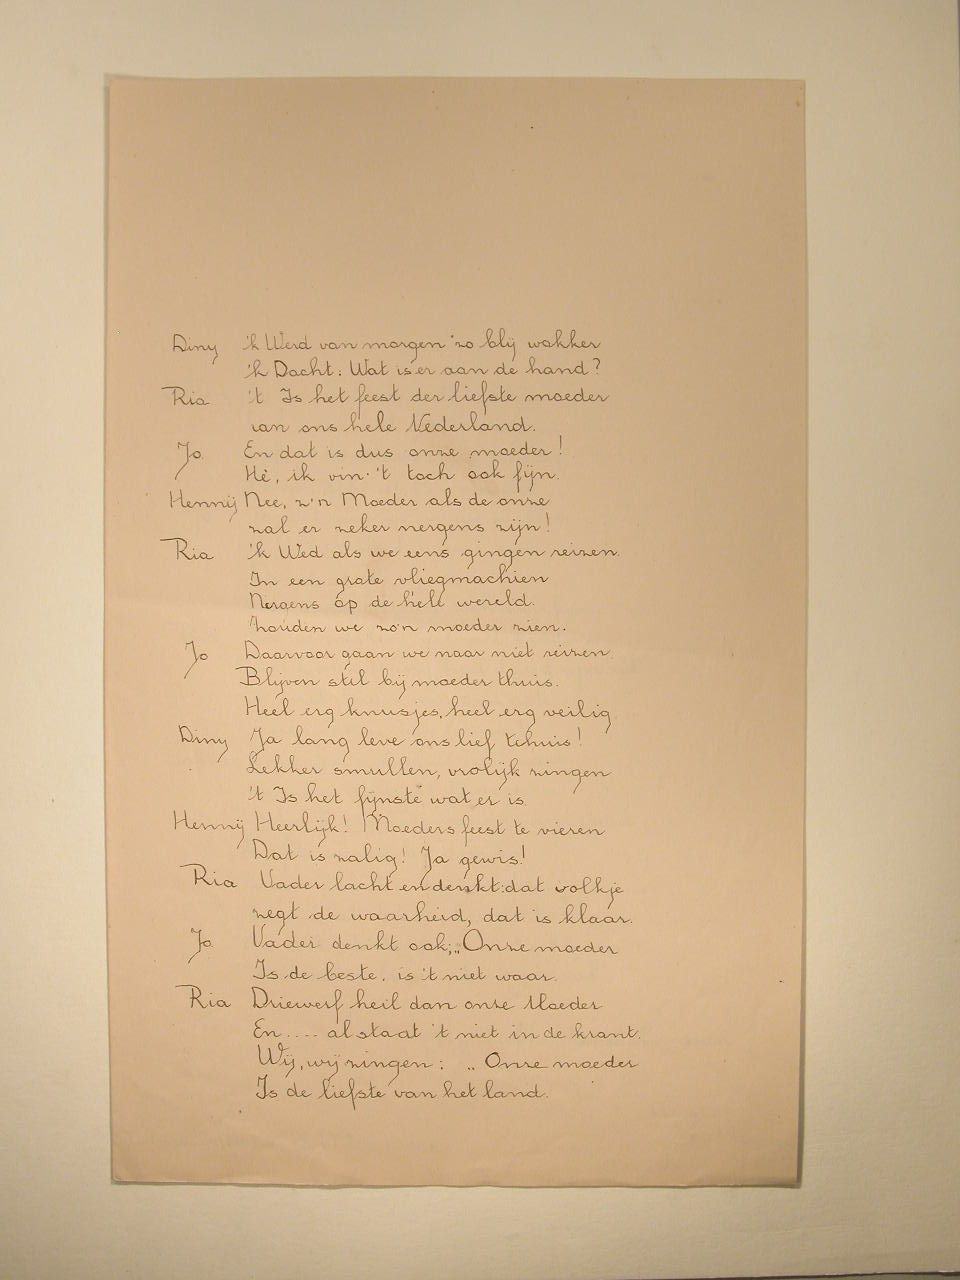 Diny 'k Werd van morgen zo blij wakker
'k Dacht: Wat is er aan de hand?
Ria 't Is het feest der liefste moeder
van ons hele Nederland.
Jo En dat is dus onze moeder!
Hè, ik vin 't toch ook fijn.
Hennij Nee, z'n Moeder als de onze
zal er zeker nergens zijn!
Ria 'k Wed als we eens gingen reizen.
In een grote vliegmachien
Nergens op de hele wereld.
zouden we zo'n moeder zien.
Jo Daarvoor gaan we naar niet reizen.
Blijven stil bij moeder thuis.
Heel erg knusjes, heel erg veilig
Diny Ja lang leve ons lief tehuis!
Lekker smullen, vrolijk zingen
't Is het fijnste wat er is.
Hennij Heerlijk! Moeders feest te vieren
Dat is zalig! Ja gewis!
Ria Vader lacht en denkt: dat volkje
zegt de waarheid, dat is klaar.
Jo Vader denkt ook; „Onze moeder
Is de beste, is 't niet waar.
Ria Driewerf heil dan onze Moeder
En .... al staat 't niet in de krant.
Wij, wij zingen: „ Onze moeder
Is de liefste van het land.